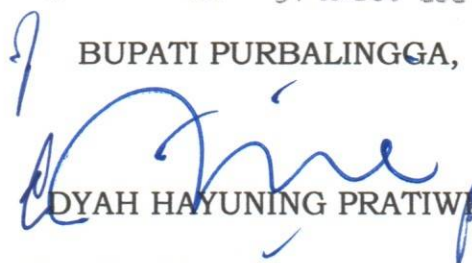 BUPATI PURBALINGGA,
DYAH HAYUNING PRATIWI